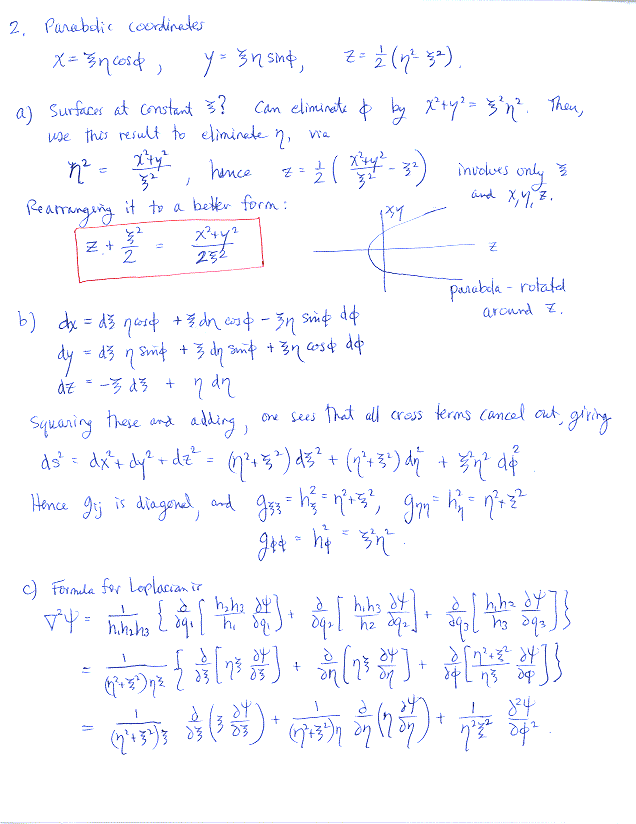 2. Parabolic coordinates
x = ξη cosϕ , y = ξη sinϕ, z = ½ (η² - ξ²).
a) Surfaces at constant ξ? Can eliminate ϕ by x²+y² = ξ²η². Then,
use this result to eliminate η, via
η² = (x²+y²)/ξ² , hence z = ½ ( (x²+y²)/ξ² - ξ² ) involves only ξ
and x, y, z.
Rearranging it to a better form:
z + ξ²/2 = (x²+y²)/2ξ²
xy
z
parabola - rotated
around z.
b) dx = dξ η cosϕ + ξ dη cosϕ - ξη sinϕ dϕ
dy = dξ η sinϕ + ξ dη sinϕ + ξη cosϕ dϕ
dz = -ξ dξ + η dη
Squaring these and adding, one sees that all cross terms cancel out, giving
ds² = dx² + dy² + dz² = (η²+ξ²) dξ² + (η²+ξ²) dη² + ξ²η² dϕ².
Hence gij is diagonal, and gξξ = hξ² = η²+ξ², gηη = hη² = η²+ξ²
gϕϕ = hϕ² = ξ²η².
c) Formula for Laplacian is
∇²ψ = 1/(h₁h₂h₃) { ∂/∂q₁ [ h₂h₃/h₁ ∂ψ/∂q₁ ] + ∂/∂q₂ [ h₁h₃/h₂ ∂ψ/∂q₂ ] + ∂/∂q₃ [ h₁h₂/h₃ ∂ψ/∂q₃ ] }
= 1/((η²+ξ²)ηξ) { ∂/∂ξ [ ηξ ∂ψ/∂ξ ] + ∂/∂η [ ηξ ∂ψ/∂η ] + ∂/∂ϕ [ (η²+ξ²)/ηξ ∂ψ/∂ϕ ] }
= 1/((η²+ξ²)ξ) ∂/∂ξ ( ξ ∂ψ/∂ξ ) + 1/((η²+ξ²)η) ∂/∂η ( η ∂ψ/∂η ) + 1/(η²ξ²) ∂²ψ/∂ϕ² .